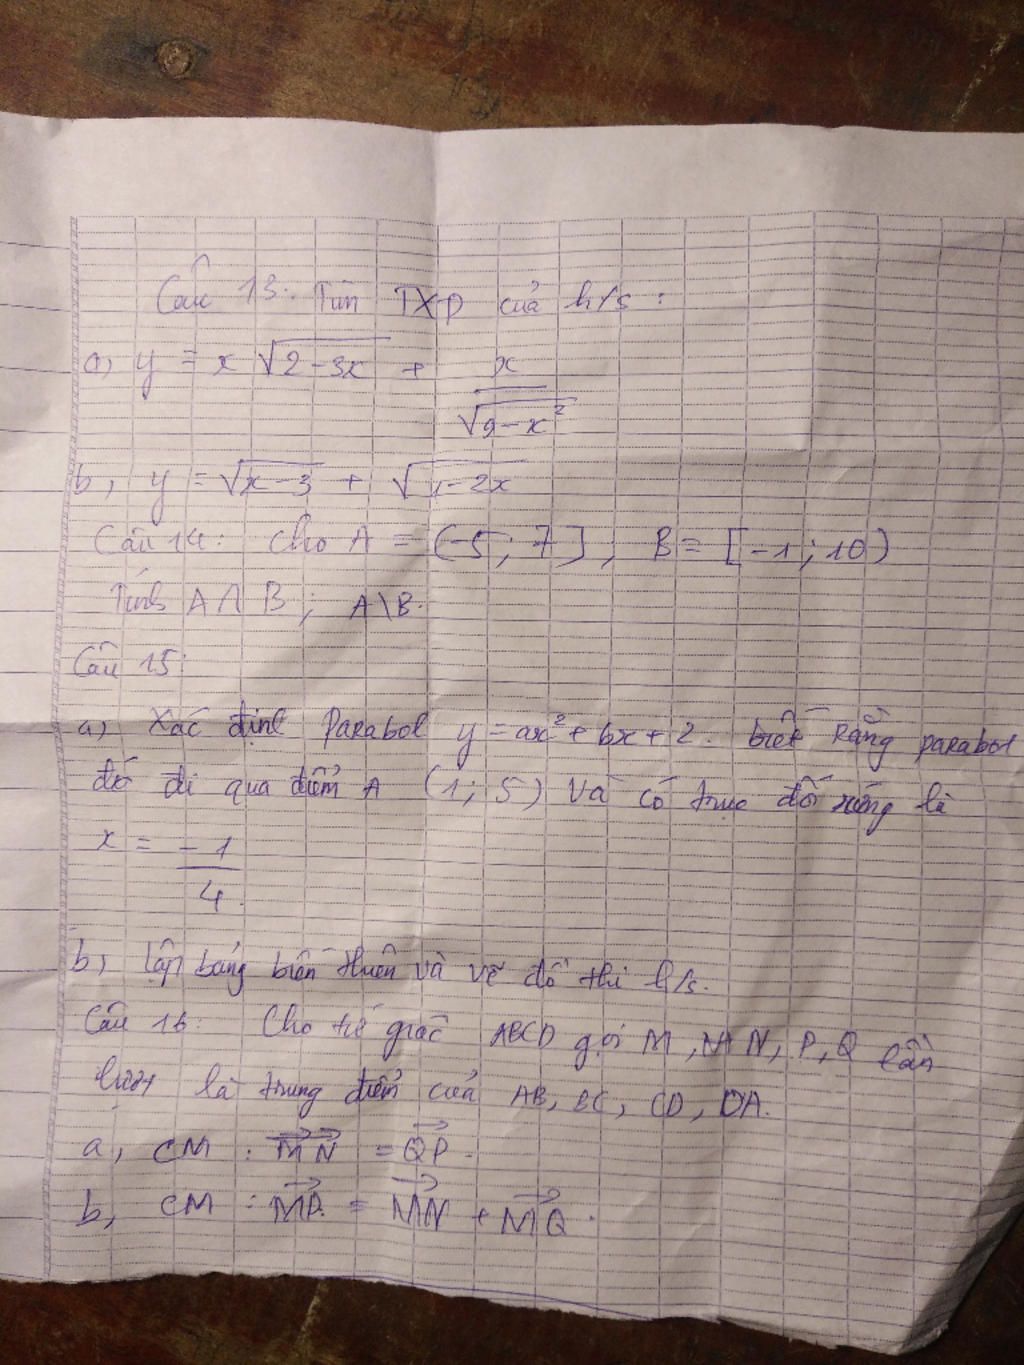 Câu 13: Tìm TXĐ của h/s:
a, y = x √(2-3x) + x/√(9-x²)
b, y = √(x-3) + √(1-2x)
Câu 14: Cho A = (-5; 7], B = [-1; 10)
Tính A∩B; A\B.
Câu 15:
a) Xác định Parabol y = ax² + bx + 2. biết rằng parabol
đó đi qua điểm A (1; 5) và có trục đối xứng là
x = -1/4.
b, lập bảng biến thiên và vẽ đồ thị h/s.
Câu 16: Cho tứ giác ABCD gọi M, N, P, Q lần
lượt là trung điểm của AB, BC, CD, DA.
a, CM: →MN = →QP.
b, CM: →MP = →MN + →MQ.